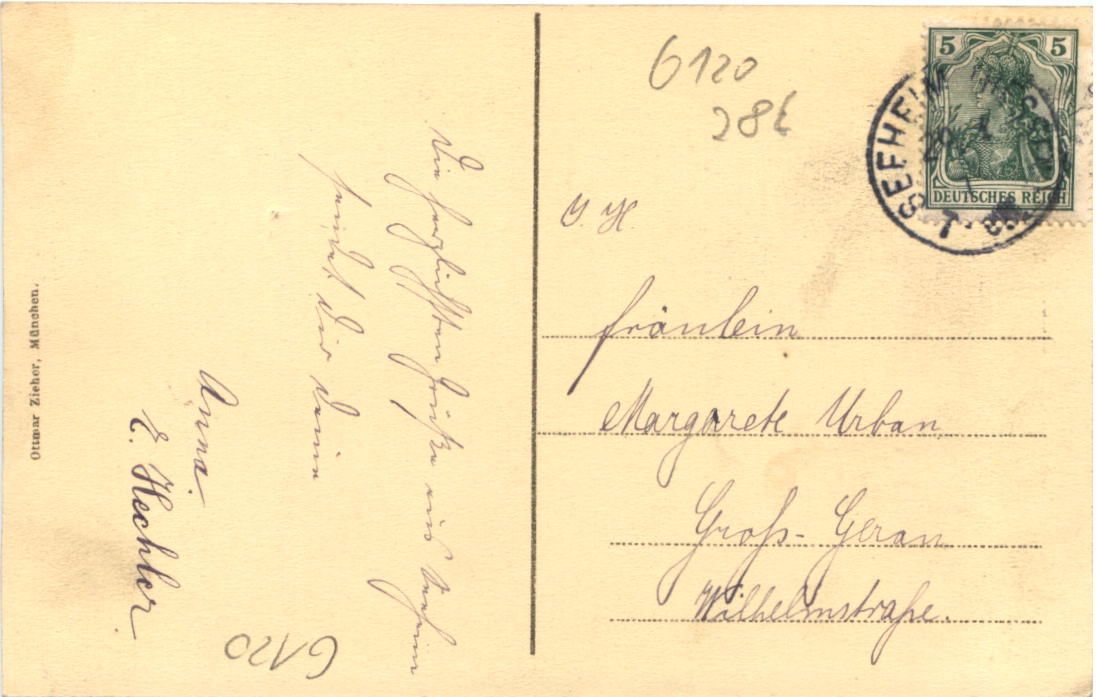 Ottmar Zieher, München.
Die herzlichsten Grüße aus Seeheim
sendet Dir Deine
Anna.
E. Hechler
6120
6120
286
5 5
DEUTSCHES REICH
SEEHEIM
Fräulein
Margarete Urban
Groß-Gerau
Wilhelmstraße.